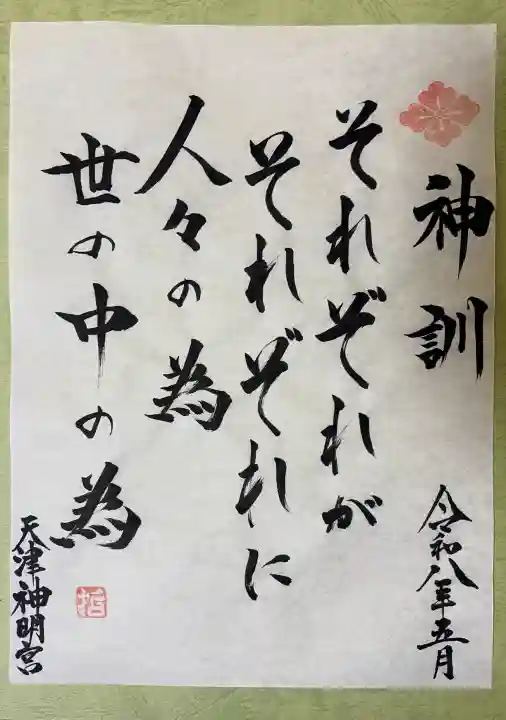 神訓
令和八年五月
それぞれが
それぞれに
人々の為
世の中の為
天津神明宮
哲